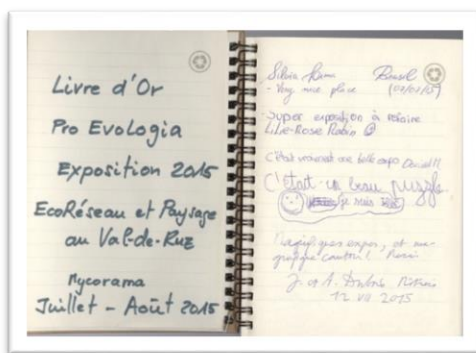 Livre d'Or
Pro Evologia
Exposition 2015
EcoRéseau et Paysage
au Val-de-Ruz
Mycorama
Juillet - Août 2015
Silvia Brasil
- Very nice place
Super exposition à refaire
Lilie-Rose Robin
C'était vraiment une belle expo
C'était un beau puzzle
je sais
expos, et
J. et A.
12 VII 2015